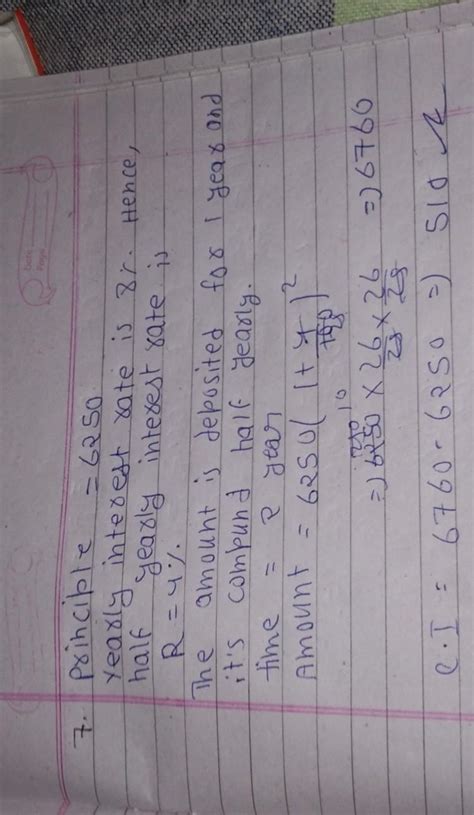 7. Principle = 6250
Yearly interest rate is 8%. Hence,
half yearly interest rate is
R = 4%
The amount is deposited for 1 year and
it's compund half yearly.
time = 2 year
Amount = 6250 ( 1 + 4/100 )²
250 10
=) 6250 × 26/25 × 26/25 =) 6760
C.I = 6760 - 6250 =) 510